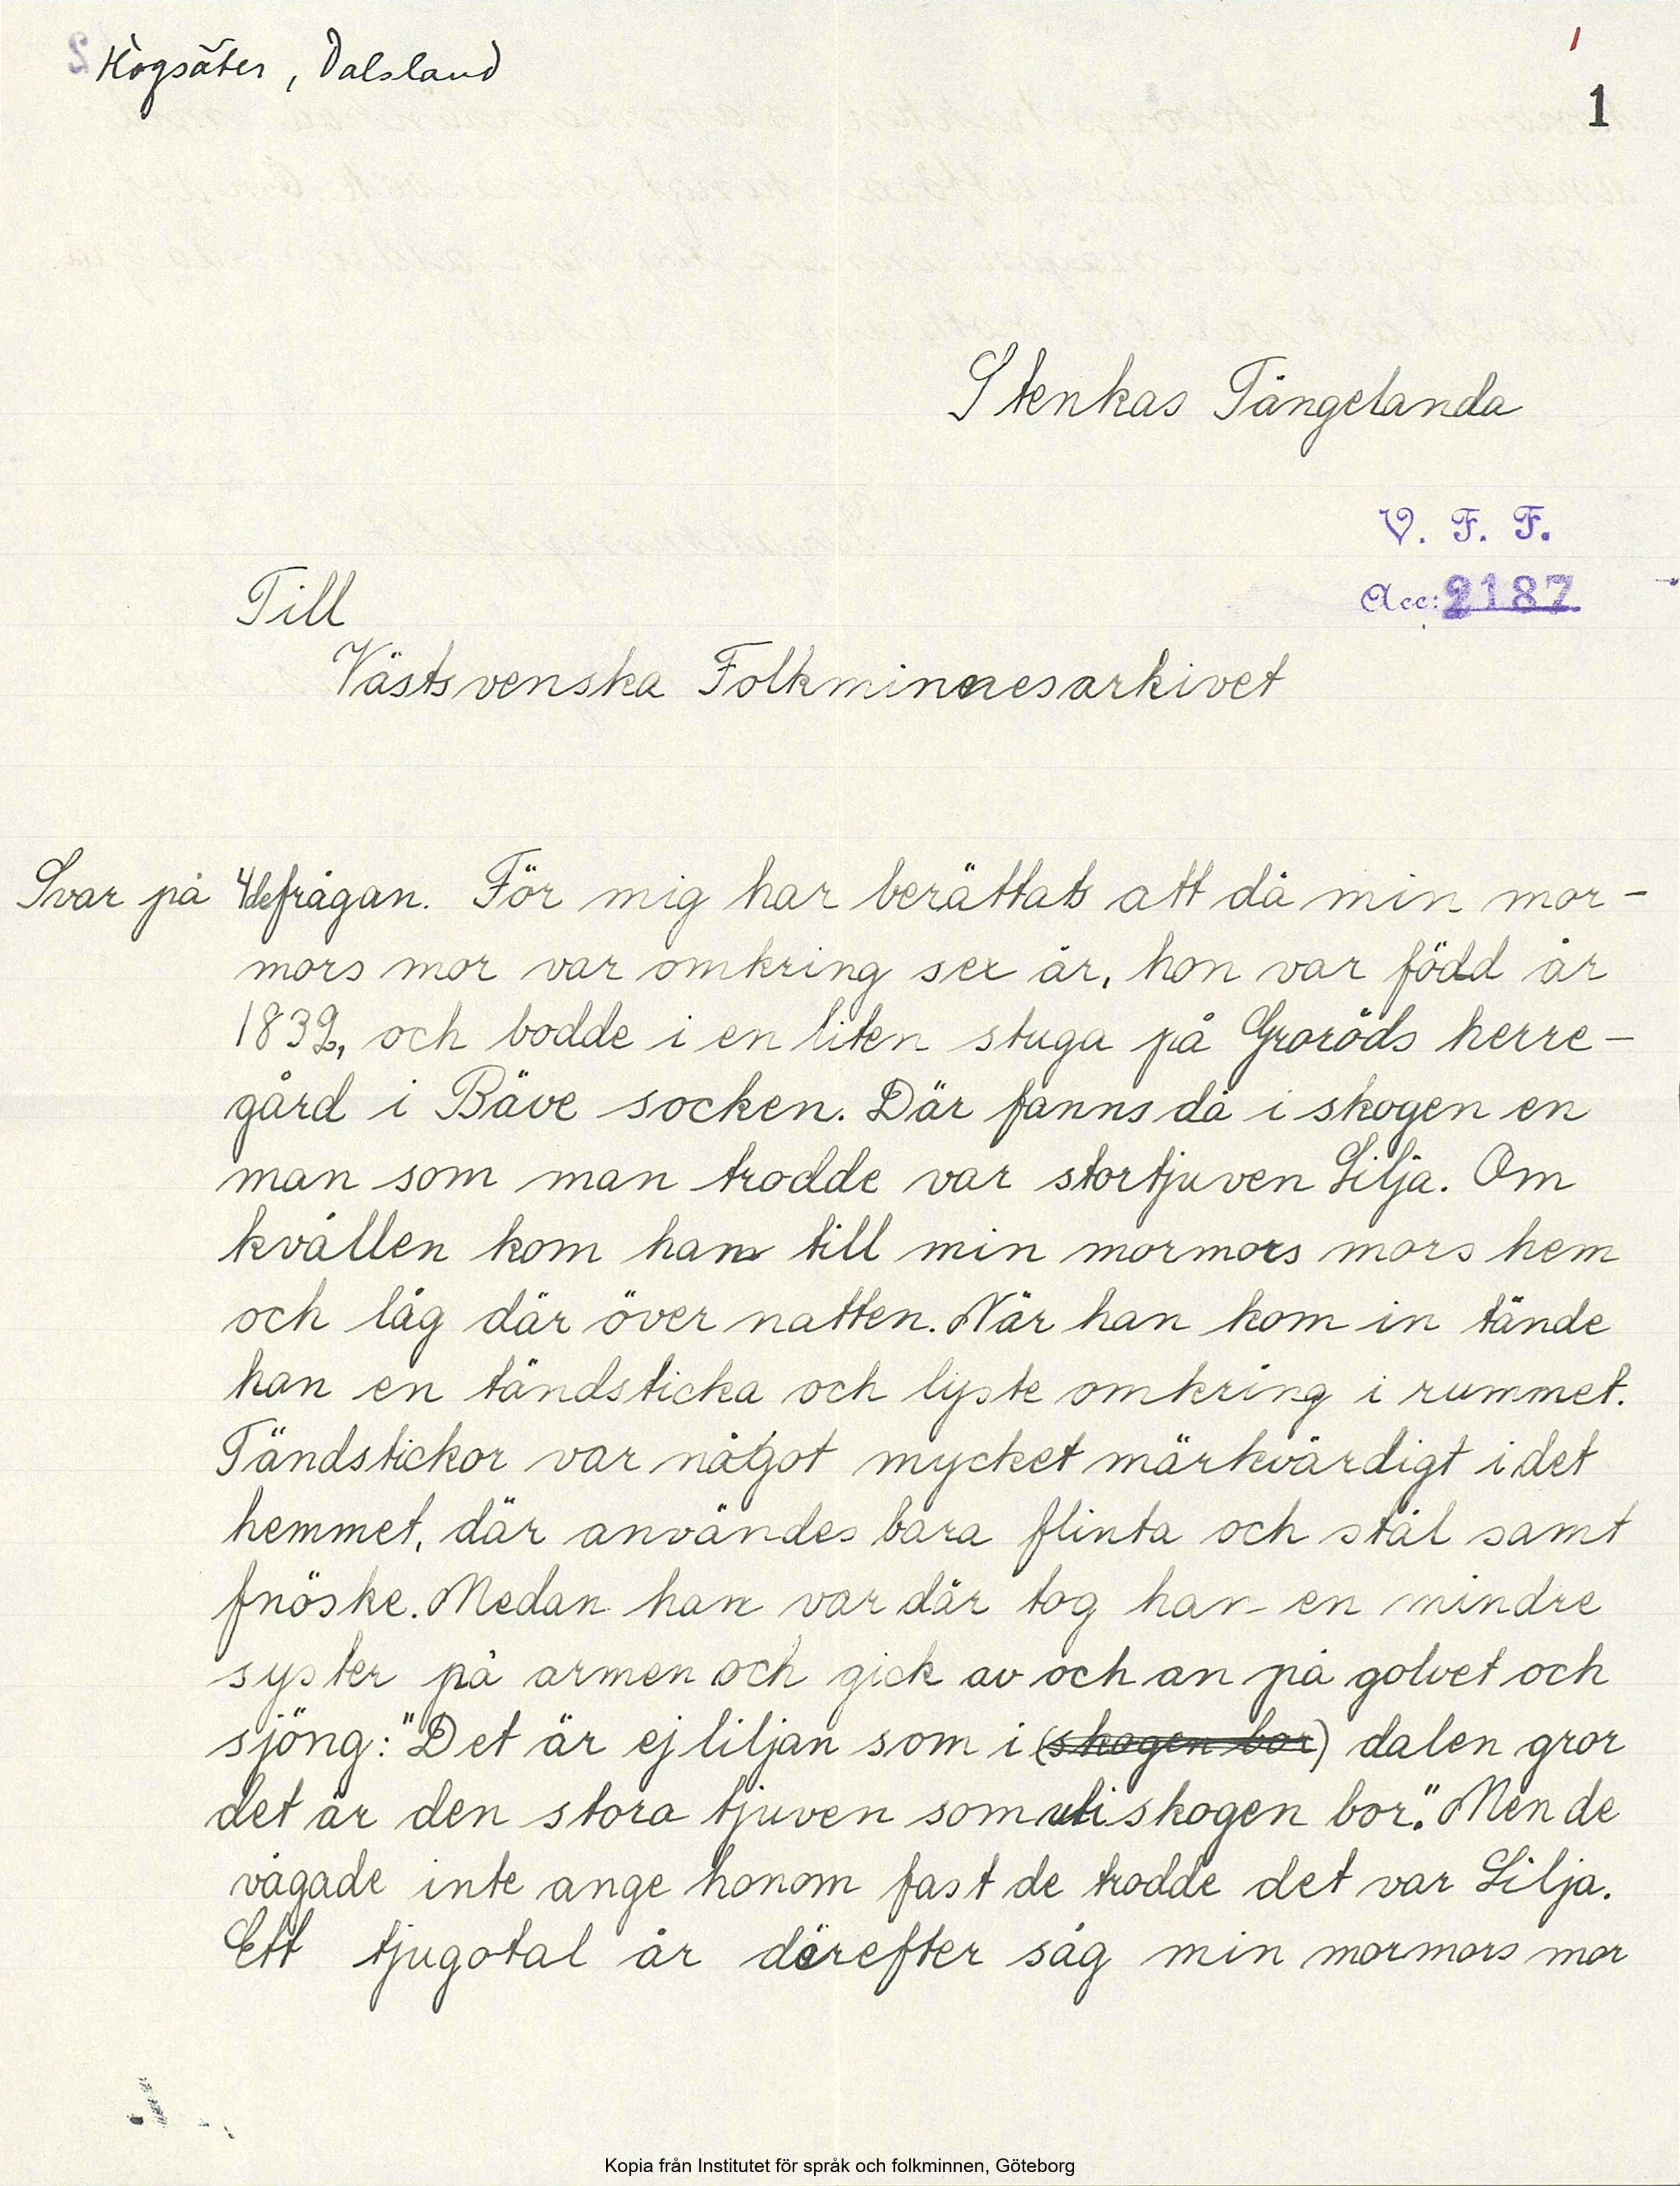 Högsäter, Dalsland
1
1
Stenkas Tängelanda
V. F. F.
Acc: 2187
Till
Västsvenska Folkminnesarkivet
Svar på 4de frågan. För mig har berättats att då min mor-
mors mor var omkring sex år, hon var född år
1832, och bodde i en liten stuga på Groröds herre-
gård i Bäve socken. Där fanns då i skogen en
man som man trodde var stortjuven Lilja. Om
kvällen kom han till min mormors mors hem
och låg där över natten. När han kom in tände
han en tändsticka och lyste omkring i rummet.
Tändstickor var något mycket märkvärdigt i det
hemmet, där användes bara flinta och stål samt
fnöske. Medan han var där tog han en mindre
syster på armen och gick av och an på golvet och
sjöng: "Det är ej liljan som i (skogen bor) dalen gror
det är den stora tjuven som uti skogen bor." Men de
vågade inte ange honom fast de trodde det var Lilja.
Ett tjugotal år därefter såg min mormors mor
Kopia från Institutet för språk och folkminnen, Göteborg